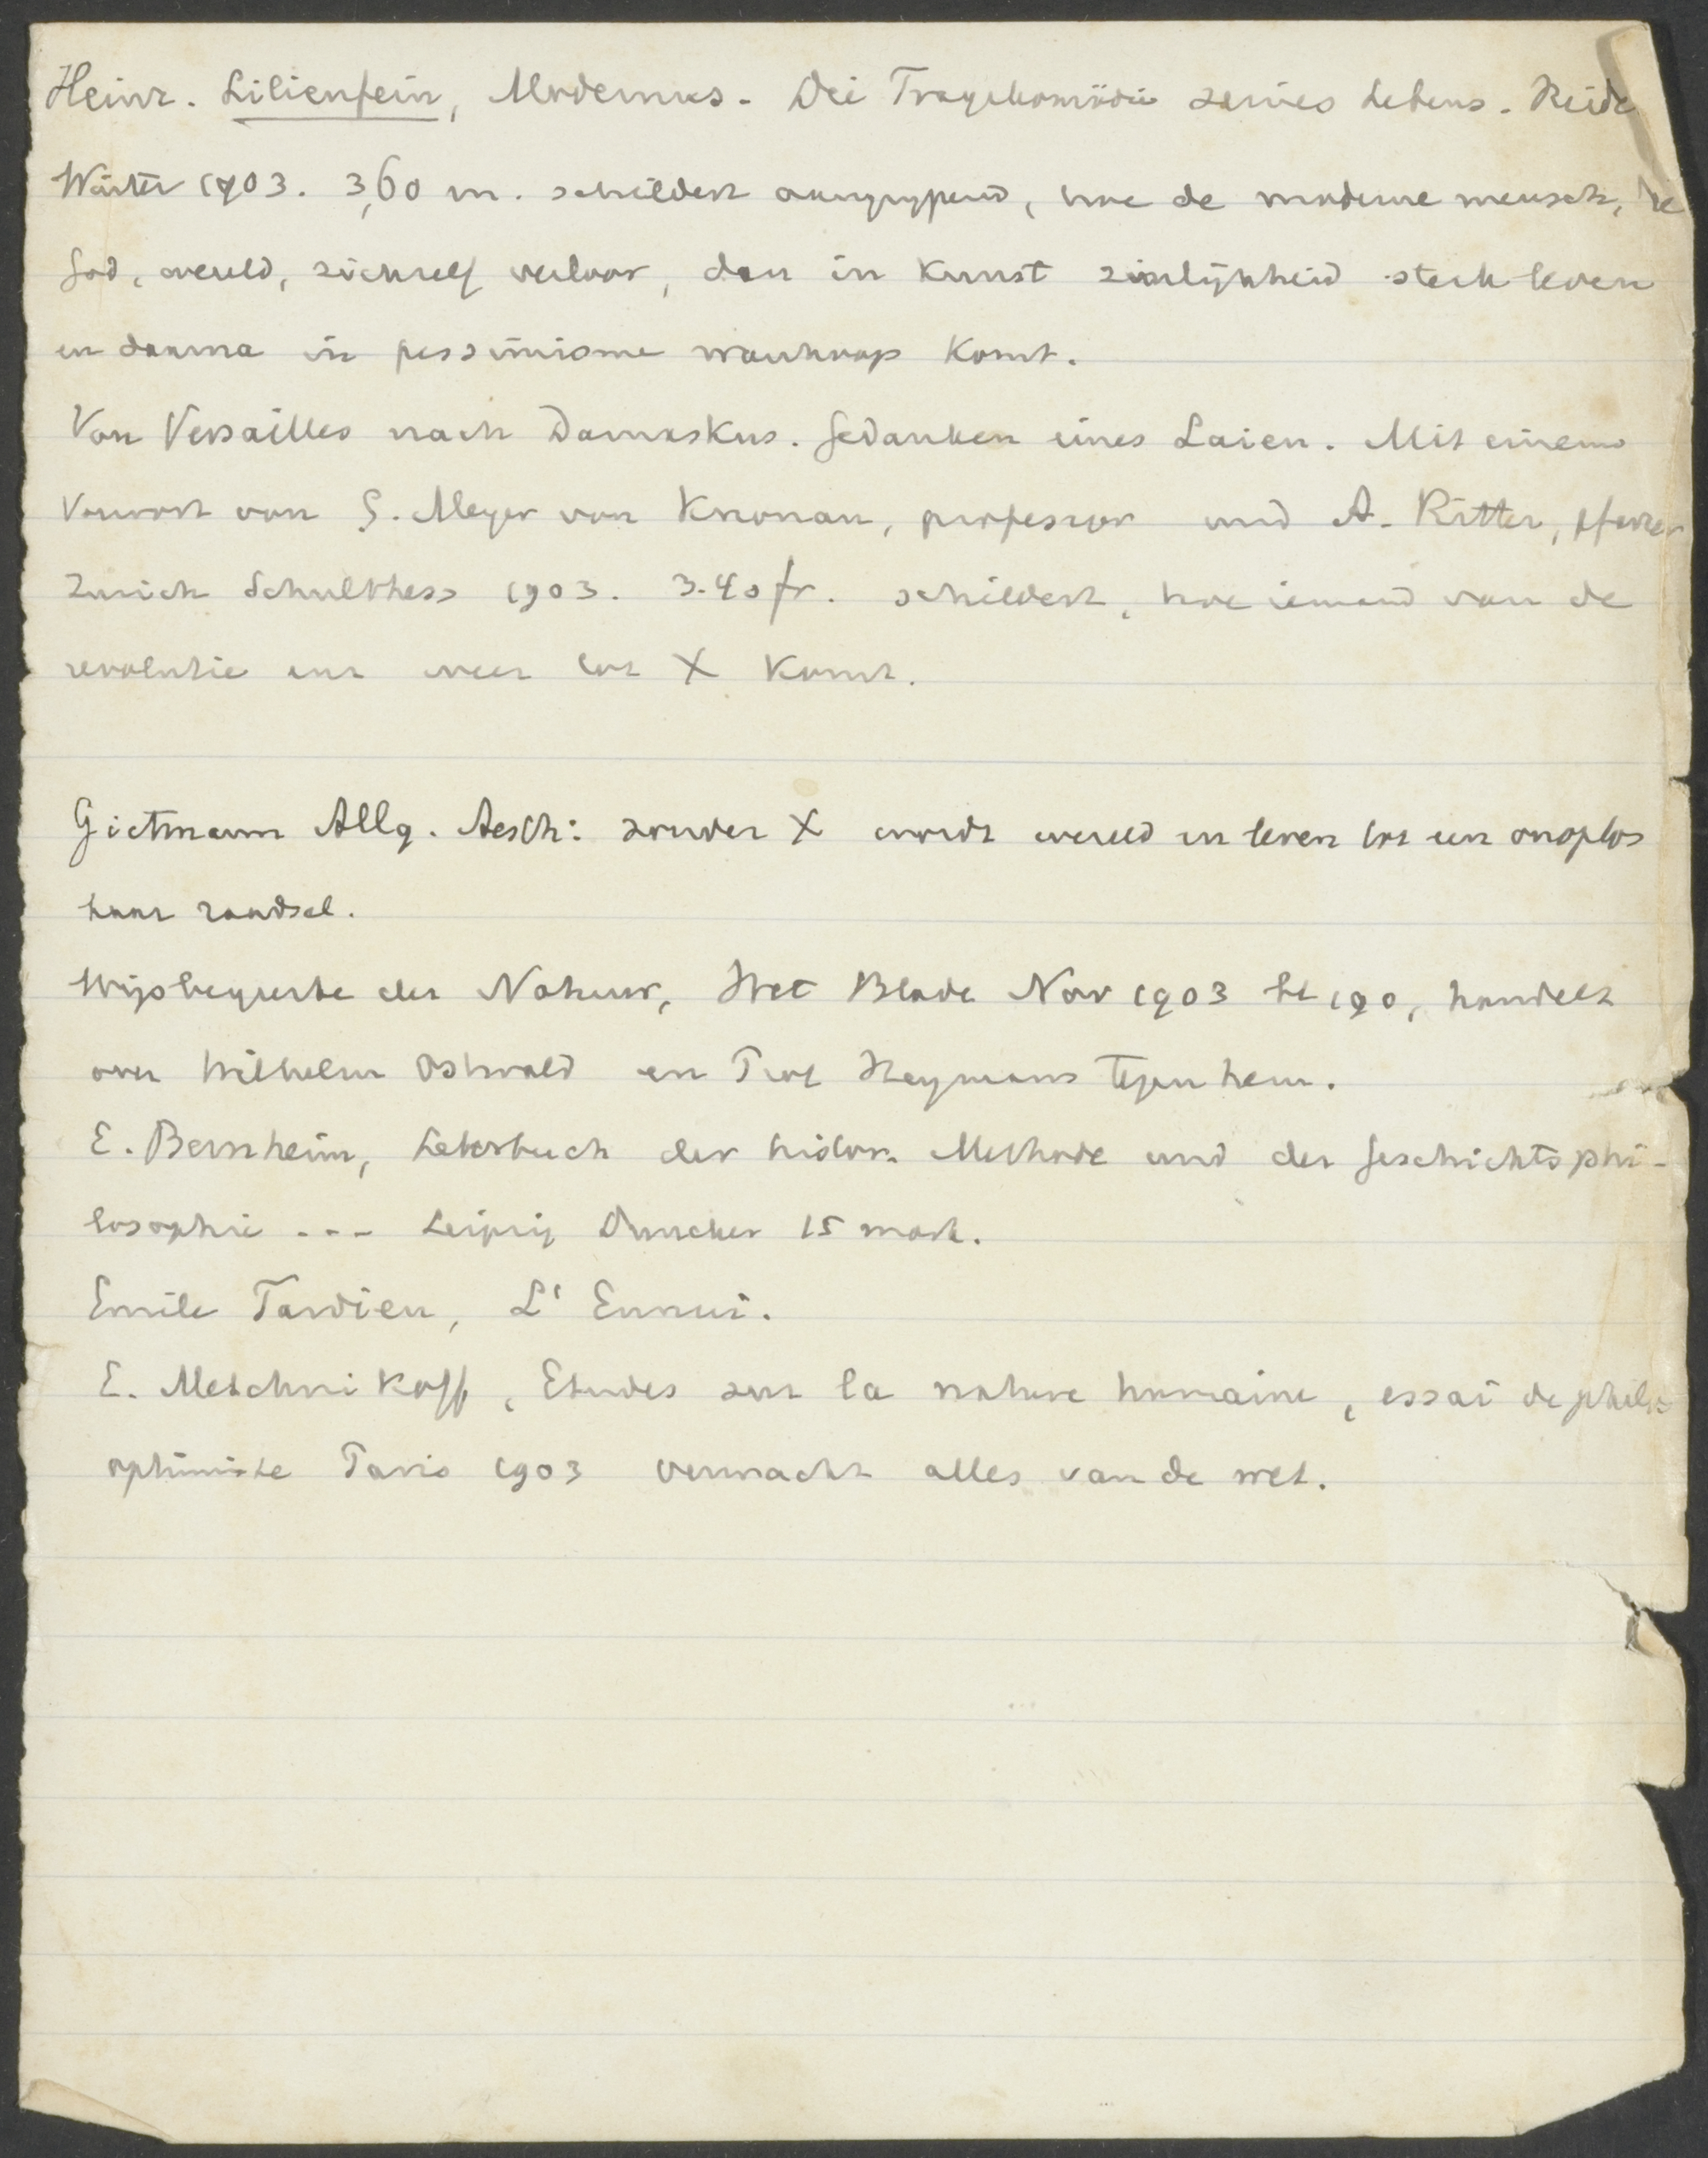 Heinr. Lilienfein, Modernus. Die Tragikomödie seines Lebens. Heide
Winter 1903. 3,60 m. schildert aangrijpend, hoe de moderne mensch, die
God, wereld, zichzelf verloor, dan in Kunst zinlijkheid sterk leven
en daarna in pessimisme wanhoop komt.
Von Versailles nach Damaskus. Gedanken eines Laien. Mit einem
Vorwort von G. Meyer von Knonau, professor und A. Ritter, pfarrer
Zurich Schulthess 1903. 3.40 fr. schildert, hoe iemand van de
revolutie uit weer tot X komt.
Gietmann Allg. Aesth: zonder X wordt wereld en leven tot een onoplos
baar raadsel.
Wijsbegeerte der Natuur, Wet Blade Nov 1903 bl 190, handelt
over Wilhelm Ostwald en Prof Heymans tegen hem.
E. Bernheim, Lehrbuch der histor. Methode und der Geschichtsphi-
losophie --- Leipzig Duncker 15 mark.
Emile Tardieu, L' Ennui.
E. Metchnikoff, Etudes sur la nature humaine, essai de philos
optimiste Paris 1903 verwacht alles van de wet.